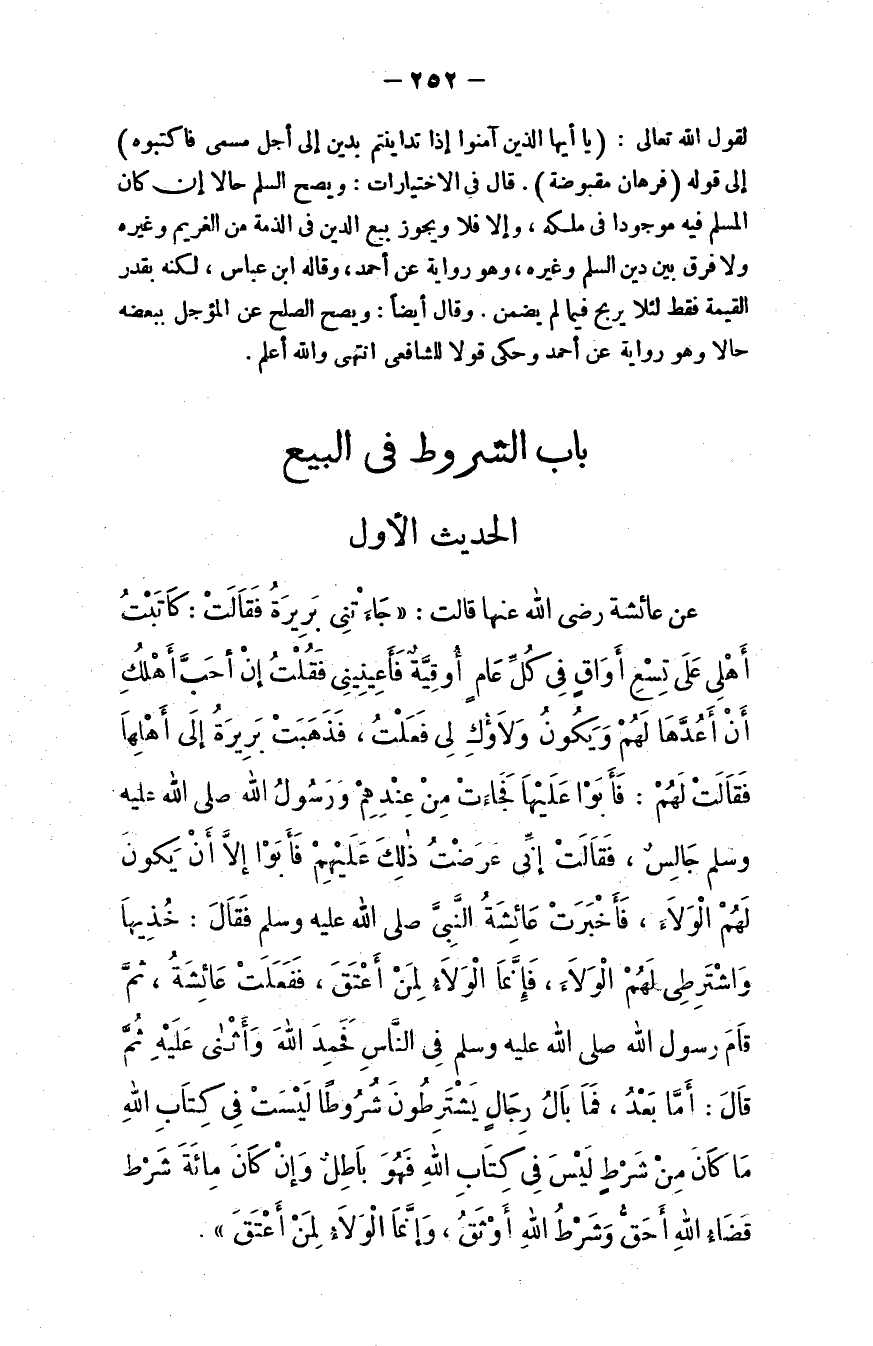 — ٢٥٢ —
لقول الله تعالى : ( يا أيها الذين آمنوا إذا تداينتم بدين إلى أجل مسمى فاكتبوه )
إلى قوله ( فرهان مقبوضة ) . قال فى الاختيارات : ويصح السلم حالا إن كان
المسلم فيه موجودا فى ملكه ، وإلا فلا ويجوز بيع الدين فى الذمة من الغريم وغيره
ولا فرق بين دين السلم وغيره ، وهو رواية عن أحمد ، وقاله ابن عباس ، لكنه بقدر
القيمة فقط لئلا يربح فيما لم يضمن . وقال أيضاً : ويصح الصلح عن المؤجل ببعضه
حالا وهو رواية عن أحمد وحكى قولا للشافعى انتهى والله أعلم .
باب الشروط فى البيع
الحديث الأول
عن عائشة رضى الله عنها قالت : « جَاءَتْنِى بَرِيرَةُ فَقَالَتْ : كَاتَبْتُ
أَهْلِى عَلَى تِسْعِ أَوَاقٍ فِى كُلِّ عَامٍ أُوقِيَّةٌ فَأَعِينِينِى فَقُلْتُ إِنْ أَحَبَّ أَهْلُكِ
أَنْ أَعُدَّهَا لَهُمْ وَيَكُونُ وَلَاؤُكِ لِى فَعَلْتُ ، فَذَهَبَتْ بَرِيرَةُ إِلَى أَهْلِهَا
فَقَالَتْ لَهُمْ : فَأَبَوْا عَلَيْهَا فَجَاءَتْ مِنْ عِنْدِهِمْ وَرَسُولُ الله صلى الله عليه
وسلم جَالِسٌ ، فَقَالَتْ إِنِّى عَرَضْتُ ذٰلِكَ عَلَيْهِمْ فَأَبَوْا إِلاَّ أَنْ يَكونَ
لَهُمْ الْوَلاَء ، فَأَخْبَرَتْ عَائِشَةُ النَّبِىَّ صلى الله عليه وسلم فَقَالَ : خُذِيهَا
وَاشْتَرِطِى لَهُمْ الْوَلاَءَ ، فَإِنَّمَا الْوَلاَءُ لِمَنْ أَعْتَقَ ، فَفَعَلَتْ عَائِشَةُ ، ثمَّ
قَامَ رسول الله صلى الله عليه وسلم فِى النَّاسِ فَحَمِدَ اللهَ وَأَثْنٰى عَلَيْهِ ثُمَّ
قَالَ : أَمَّا بَعْدُ ، فَمَا بَالُ رِجَالٍ يَشْتَرِطُونَ شُرُوطًا لَيْسَتْ فِى كِتَابِ اللهِ
مَا كَانَ مِنْ شَرْطٍ لَيْسَ فِى كِتَابِ اللهِ فَهُوَ بَاطِلٌ وَإِنْ كَانَ مِائَةَ شَرْط
قَضَاءُ اللهِ أَحَقُّ وَشَرْطُ اللهِ أَوْثَقُ ، وَإِنَّمَا الْوَلاَءُ لِمَنْ أَعْتَقَ » .